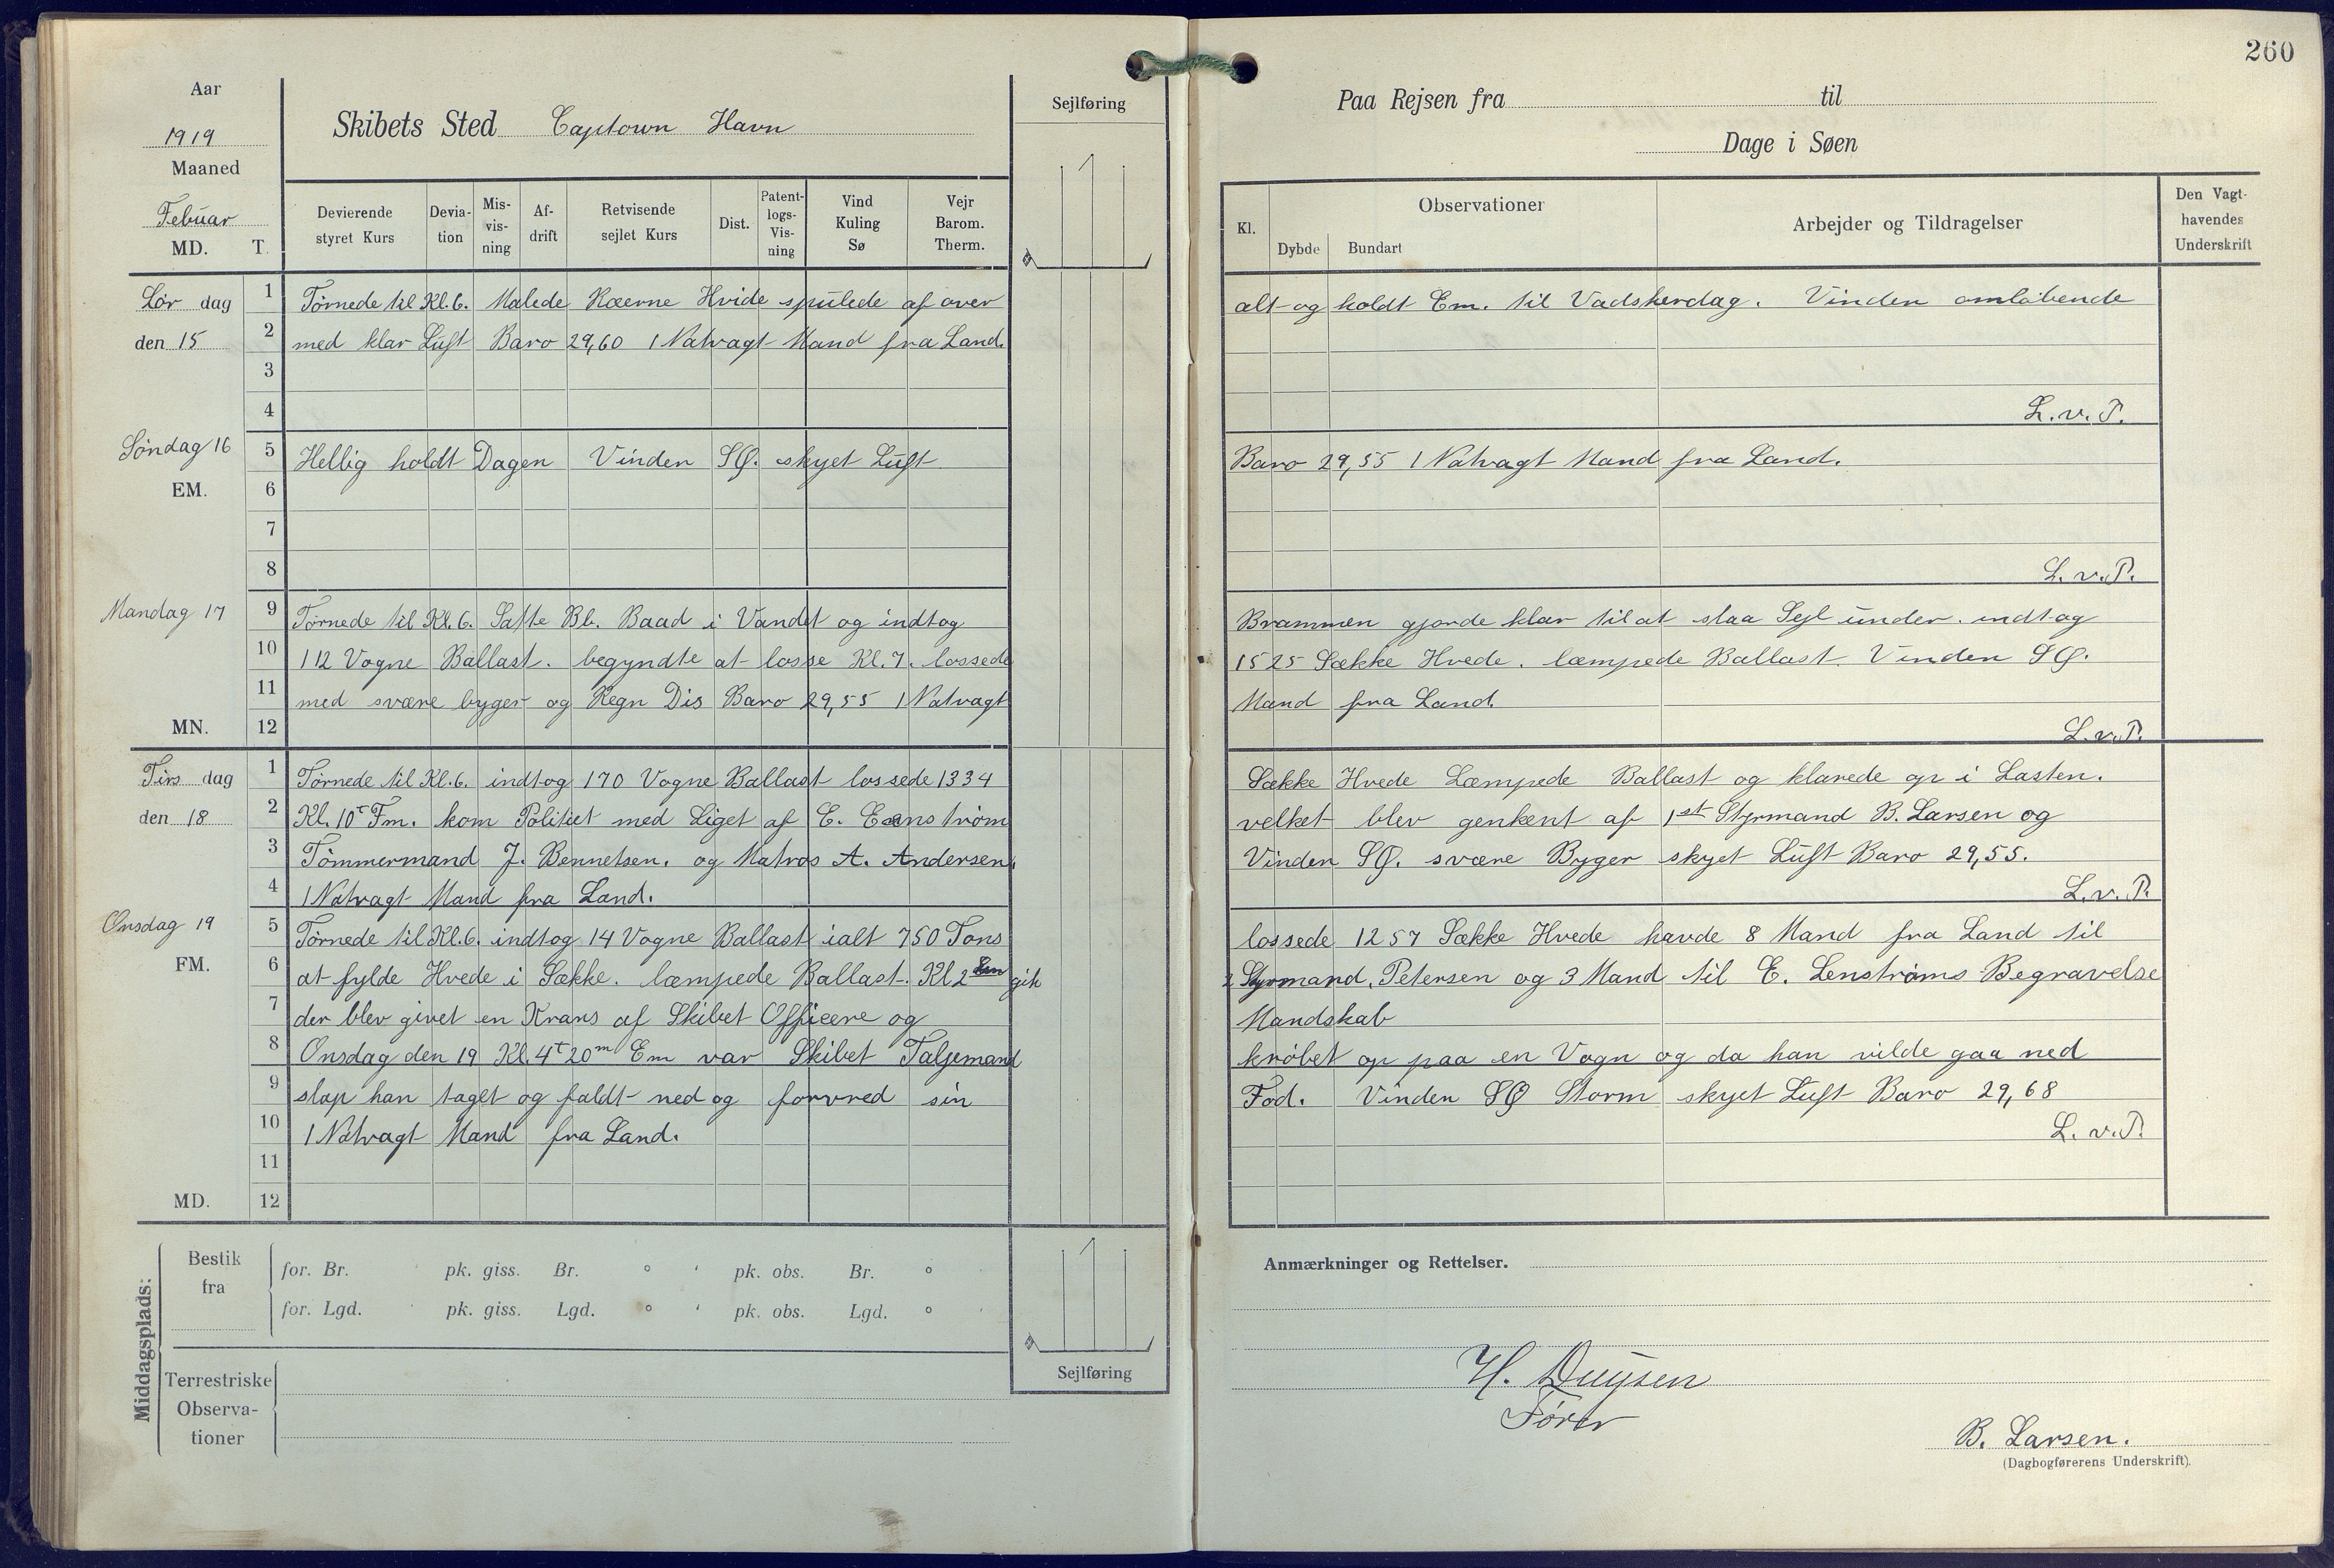 260
Aar
1919
Maaned
Febuar
MD. T.
Skibets Sted Captown Havn
Sejlføring
Paa Rejsen fra til
Dage i Søen
Devierende styret Kurs
Deviation
Misvisning
Afdrift
Retvisende sejlet Kurs
Dist.
Patentlogs-Visning
Vind Kuling Sø
Vejr Barom. Therm.
Kl.
Observationer
Dybde Bundart
Arbejder og Tildragelser
Den Vagthavendes Underskrift
Lör dag
den 15
1 Törnede til Kl. 6. Malede Ræerne Hvide spulede af over alt og holdt Em. til Vadskerdag. Vinden omlöbende
2 med klar Luft Baro 29,60 1 Natvagt Mand fra Land.
3
4 L. v. P.
Söndag 16
EM.
5 Hellig holdt Dagen Vinden SØ. skyet Luft Baro 29,55 1 Natvagt Mand fra Land.
6
7
8 L. v. P.
Mandag 17
MN.
9 Törnede til Kl. 6. Satte Bb. Baad i Vandet og indtog Brammen gjorde klar til at slaa Sejl under. indtog
10 112 Vogne Ballast. begyndte at losse Kl. 7. lossede 1525 Sække Hvede. læmpede Ballast. Vinden SØ.
11 med svære byger og Regn Dis Baro 29,55 1 Natvagt Mand fra Land.
12 L. v. P.
Tirs dag
den 18
1 Törnede til Kl. 6. indtog 170 Vogne Ballast lossede 1334 Sække Hvede Læmpede Ballast og klarede op i Lasten.
2 Kl. 10 T Fm. kom Politiet med Liget af E. Eenström velket blev genkent af 1st Styrmand B. Larsen og
3 Tömmermand J. Bennetsen. og Matros A. Andersen. Vinden SØ. svære Byger skyet Luft Baro 29,55.
4 1 Natvagt Mand fra Land. L. v. P.
Onsdag 19
FM.
5 Törnede til Kl. 6. indtog 14 Vogne Ballast ialt 750 Tons lossede 1257 Sække Hvede havde 8 Mand fra Land til
6 at fylde Hvede i Sække. læmpede Ballast. Kl 2 Em gik 2 Styrmand, Petersen og 3 Mand til E. Lenströms Begravelse
7 der blev givet en Krans af Skibet Officere og Mandskab
8 Onsdag den 19 Kl. 4 T 20 m Em var Skibet Taljemand kröbet op paa en Vogn og da han vilde gaa ned
9 slap han taget og faldt ned og forvred sin Fod. Vinden SØ Storm skyet Luft Baro 29,68
10 1 Natvagt Mand fra Land. L. v. P.
11
MD. 12
Middagsplads:
Bestik fra
for. Br. pk. giss. Br. ° ' pk. obs. Br. ° '
for. Lgd. pk. giss. Lgd. ° ' pk. obs. Lgd. ° '
Terrestriske Observationer
Sejlføring
Anmærkninger og Rettelser.
H. Duysen
Fører
B. Larsen.
(Dagbogførerens Underskrift).